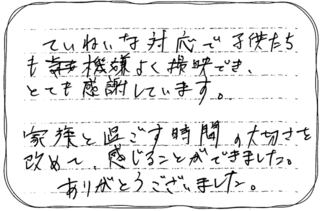 ていねいな対応で子供たち
も機嫌よく撮影でき、
とても感謝しています。
家族と過ごす時間の大切さを
改めて、感じることができました。
ありがとうございました。